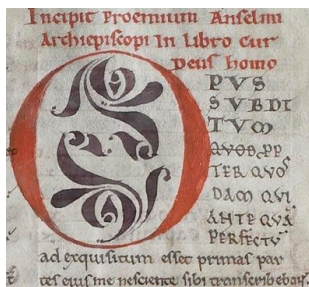 Incipit Proemium Anselmi
Archiepiscopi In Libro cur
Deus homo
OPUS
SUBDI
TUM
QUOD PP
TER QUOS
DAM QUI
ANTE QUĀ
PERFECTŪ
ad exquisitum esset primas par
tes eius me nesciente sibi transcribebant